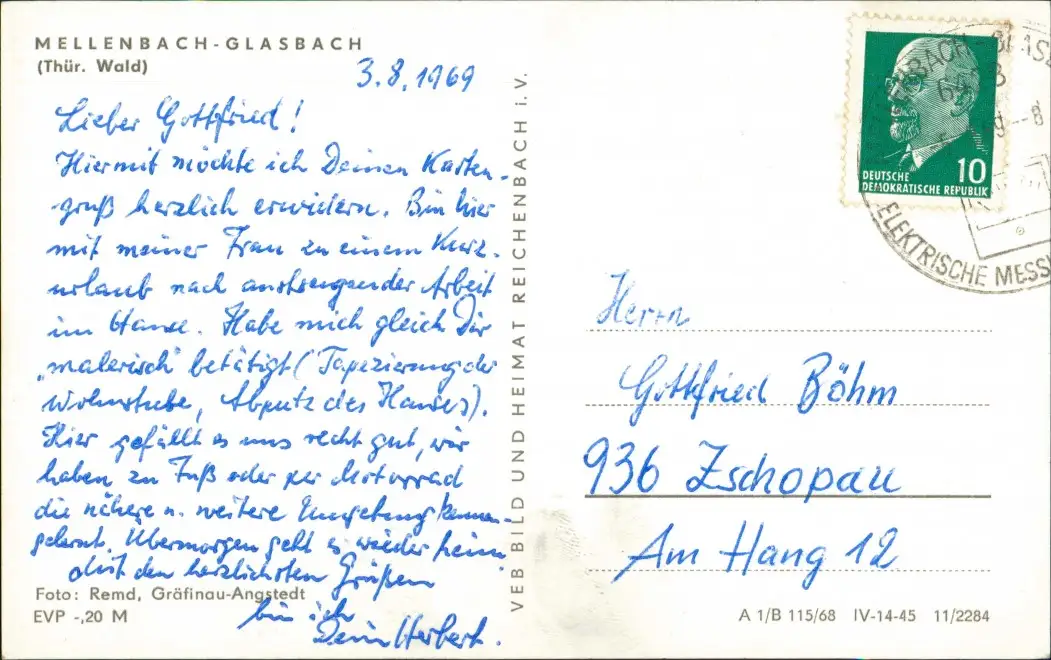 MELLENBACH-GLASBACH
(Thür. Wald)
3.8.1969
Lieber Gottfried!
Hiermit möchte ich Deinen Karten-
gruß herzlich erwidern. Bin hier
mit meiner Frau zu einem Kurz-
urlaub nach anstrengender Arbeit
im Hause. Habe mich gleich Dir
„malerisch" betätigt (Tapezierung der
Wohnstube, Abputz des Hauses).
Hier gefällt es uns recht gut, wir
haben zu Fuß oder per Motorrad
die nähere u. weitere Umgebung kennen-
gelernt. Übermorgen geht es wieder heim.
Mit den herzlichsten Grüßen
bin ich
Dein Herbert.
Foto: Remd, Gräfinau-Angstedt
EVP -,20 M
VEB BILD UND HEIMAT REICHENBACH i. V.
10
DEUTSCHE
DEMOKRATISCHE REPUBLIK
ELEKTRISCHE MESS
Herrn
Gottfried Böhm
936 Zschopau
Am Hang 12
A 1/B 115/68 IV-14-45 11/2284